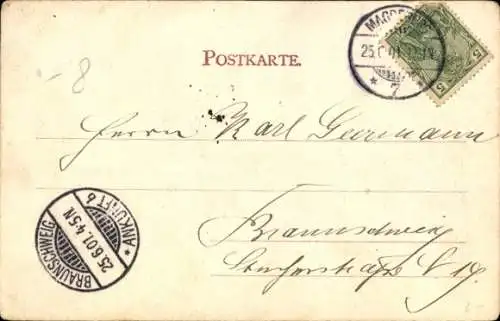 MAGDEBURG
25.6.01.
* 7 *
5
5
POSTKARTE.
-8
Herrn Karl Geermann
Braunschweig
19.
BRAUNSCHWEIG
25.6.01.4-5N.
* ANKUNFT 6